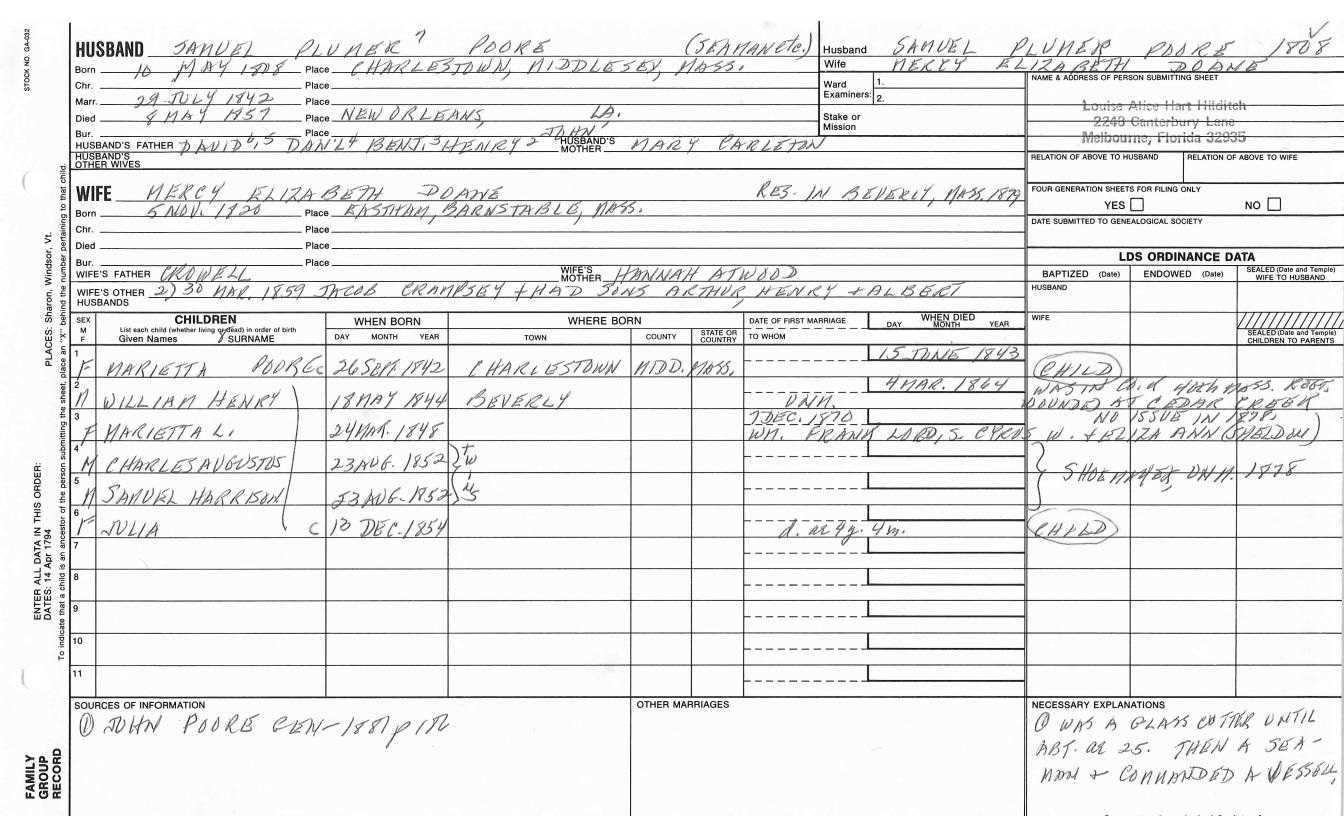 STOCK NO. GA-032
HUSBAND SAMUEL PLUMER 7 POORE (SEAMAN etc.)
Born 10 MAY 1808 Place CHARLESTOWN, MIDDLESEX, MASS.
Chr. Place
Marr. 29 JULY 1842 Place
Died 8 MAY 1857 Place NEW ORLEANS, LA.
Bur. Place
HUSBAND'S FATHER DAVID 6,5 DAN'L 4 BENJ. 3 HENRY 2 JOHN 1 HUSBAND'S MOTHER MARY CARLETON
HUSBAND'S OTHER WIVES
Husband SAMUEL PLUMER POORE 1808
Wife MERCY ELIZABETH DOANE
Ward Examiners: 1.
2.
Stake or Mission
NAME & ADDRESS OF PERSON SUBMITTING SHEET
Louise Alice Hart Hilditch
2248 Canterbury Lane
Melbourne, Florida 32935
RELATION OF ABOVE TO HUSBAND RELATION OF ABOVE TO WIFE
FOUR GENERATION SHEETS FOR FILING ONLY
YES NO
DATE SUBMITTED TO GENEALOGICAL SOCIETY
WIFE MERCY ELIZABETH DOANE RES. IN BEVERLY, MASS. 1879
Born 5 NOV. 1820 Place EASTHAM, BARNSTABLE, MASS.
Chr. Place
Died Place
Bur. Place
WIFE'S FATHER CROWELL WIFE'S MOTHER HANNAH ATWOOD
WIFE'S OTHER HUSBANDS 2) 30 MAR. 1859 JACOB CRAMPSEY + HAD SONS ARTHUR, HENRY + ALBERT
LDS ORDINANCE DATA
BAPTIZED (Date) ENDOWED (Date) SEALED (Date and Temple) WIFE TO HUSBAND
HUSBAND
WIFE
SEALED (Date and Temple) CHILDREN TO PARENTS
SEX M F CHILDREN List each child (whether living or dead) in order of birth Given Names SURNAME
WHEN BORN DAY MONTH YEAR
WHERE BORN TOWN COUNTY STATE OR COUNTRY
DATE OF FIRST MARRIAGE TO WHOM
WHEN DIED DAY MONTH YEAR
1 F MARIETTA POORE C 26 SEPT. 1842 CHARLESTOWN MIDD. MASS. 15 JUNE 1843 CHILD
2 M WILLIAM HENRY 18 MAY 1844 BEVERLY UNM. 4 MAR. 1864 WAS IN CO. d 40th MASS. REGT. WOUNDED AT CEDAR CREEK
3 F MARIETTA L. 24 MAR. 1848 7 DEC. 1870 NO ISSUE IN 1878)
WM. FRANK LORD, S. CYRUS W. + ELIZA ANN (SHELDON)
4 M CHARLES AUGUSTUS 23 AUG. 1852
TWINS
5 M SAMUEL HARRISON 23 AUG. 1852 SHOEMAKER, UNM. 1878
6 F JULIA C 13 DEC. 1854 d. ae 4y. 4m. CHILD
7
8
9
10
11
SOURCES OF INFORMATION
① JOHN POORE GEN- 1881 p
OTHER MARRIAGES
NECESSARY EXPLANATIONS
① WAS A GLASS CUTTER UNTIL
ABT. ae 25. THEN A SEA-
MAN + COMMANDED A VESSEL,
PLACES: Sharon, Windsor, Vt.
ENTER ALL DATA IN THIS ORDER:
DATES: 14 Apr 1794
To indicate that a child is an ancestor of the person submitting the sheet, place an "X" behind the number pertaining to that child.
FAMILY
GROUP
RECORD